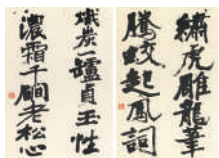 繡虎雕龍筆
騰蛟起鳳詞
熾炭一罏貞玉性
濃霜千磵老松心